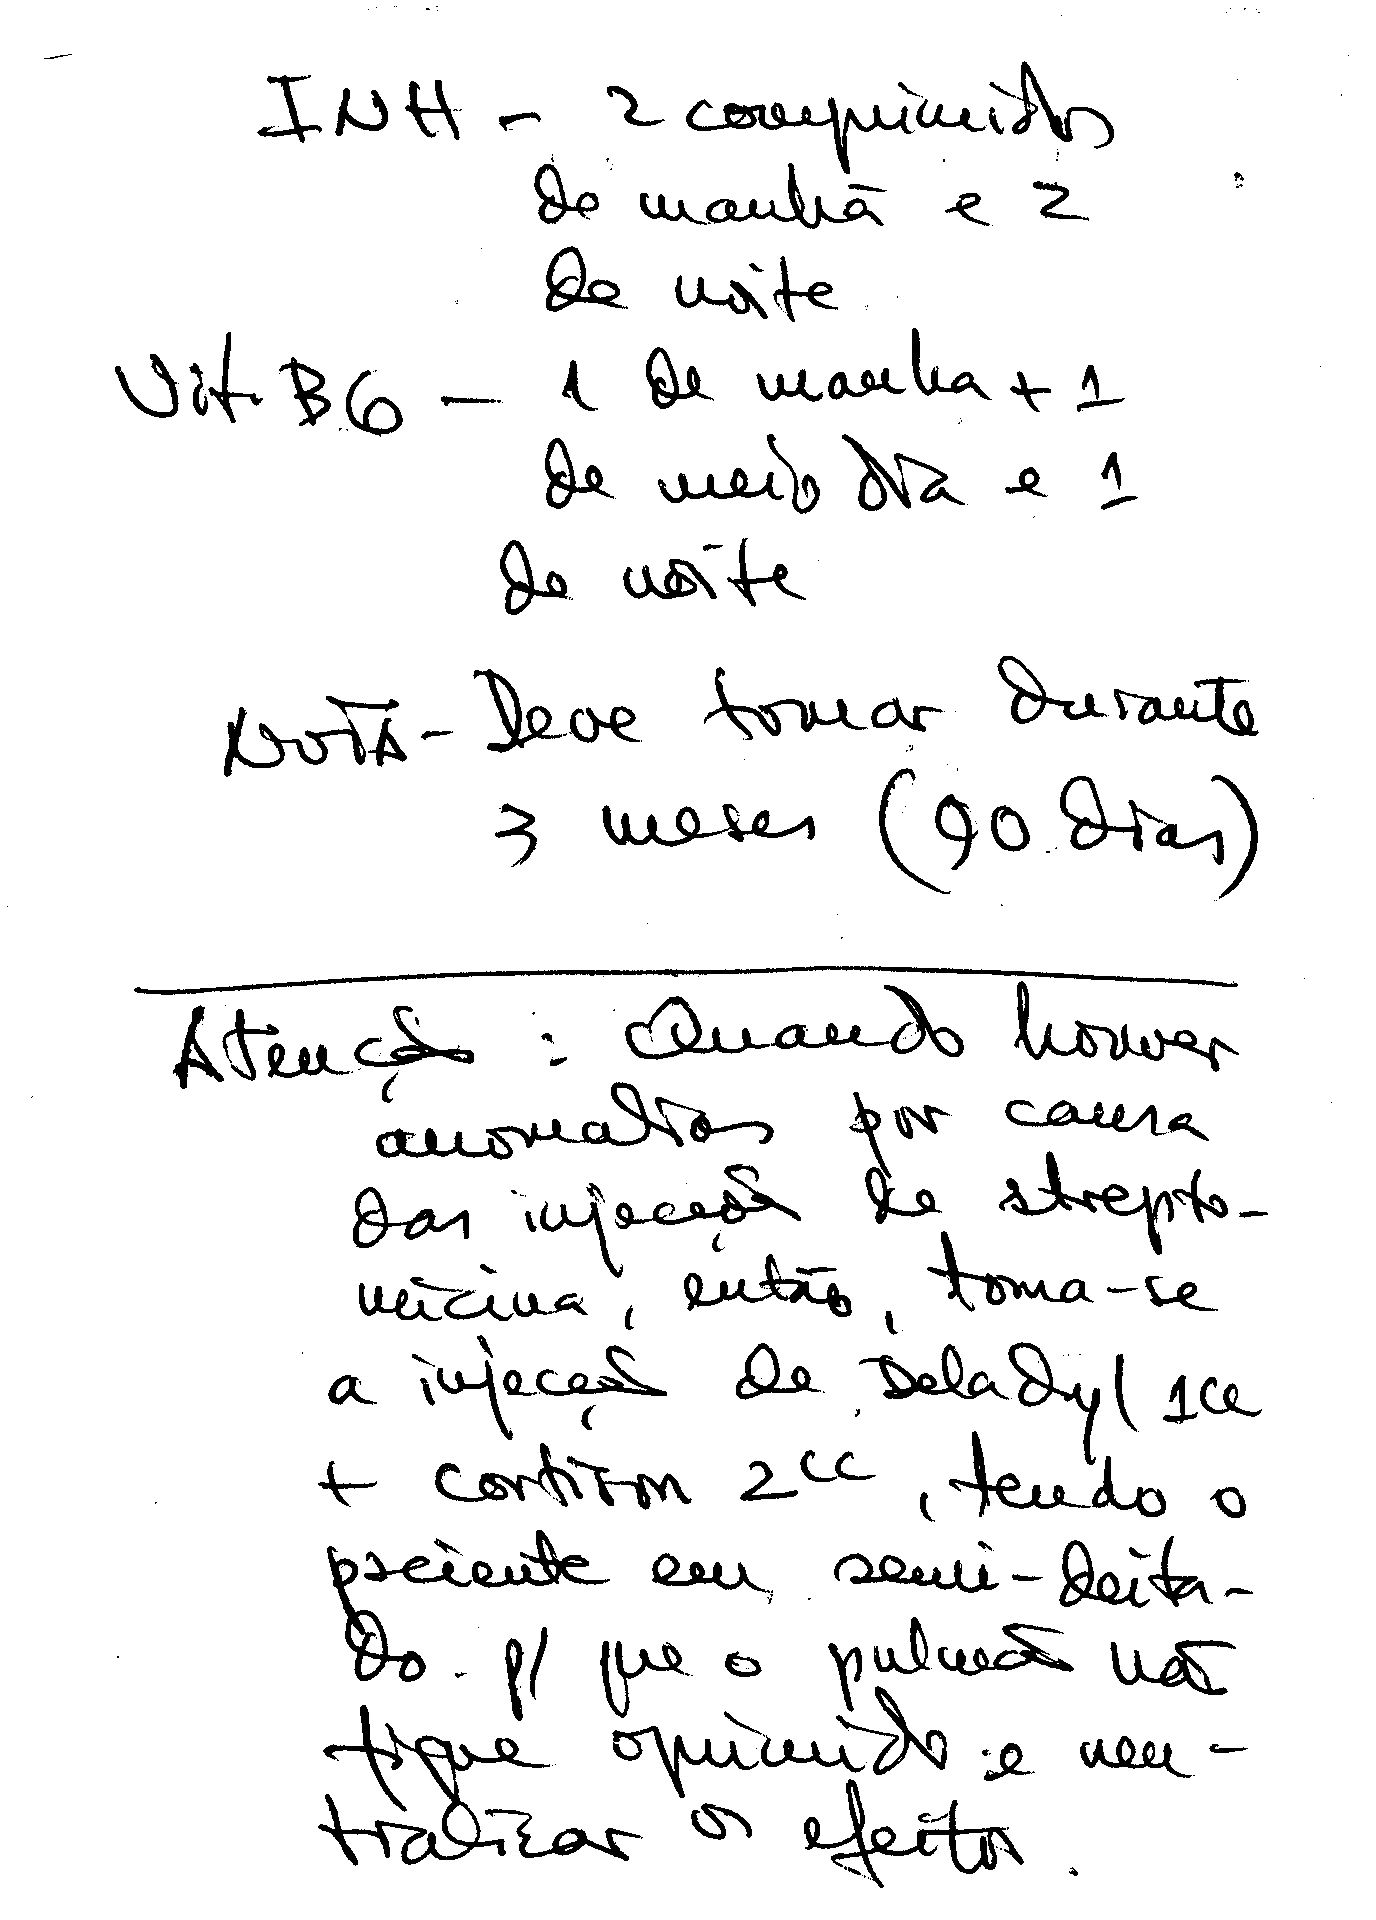 INH - 2 comprimidos
de manhã e 2
de noite
Vit. B6 - 1 de manha + 1
de meio dia e 1
de noite
NOTA - Deve tomar durante
3 meses (90 dias)
Atenção: Quando houver
anomalias por causa
das injeção de strepto-
micina, então, toma-se
a injeção de Deladyl 1cc
+ cortison 2cc, tendo o
paciente em semi-deita-
do p/ que o pulmão não
fique oprimido e neu-
tralizar os efeitos.